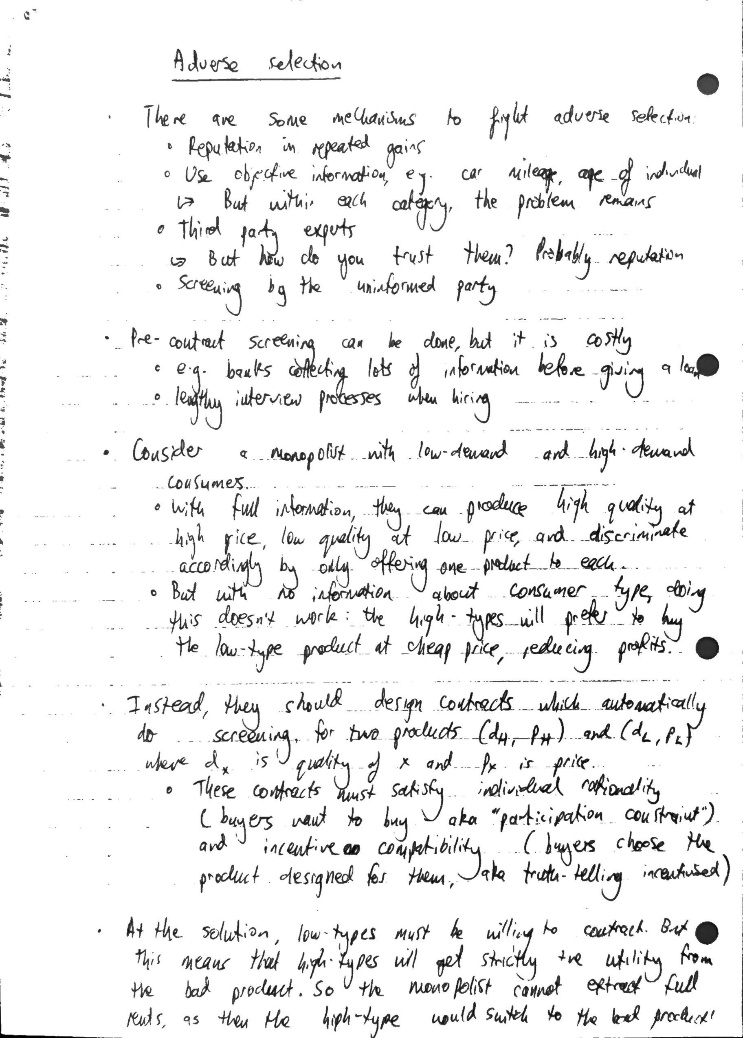 Adverse selection
· There are some mechanisms to fight adverse selection:
∘ Reputation in repeated gains
∘ Use objective information, e.g. car mileage, age of individual
↳ But within each category, the problem remains
∘ Third party experts
↳ But how do you trust them? Probably reputation
∘ Screening by the uninformed party
· Pre-contract screening can be done, but it is costly
∘ e.g. banks collecting lots of information before giving a loan
∘ lengthy interview processes when hiring
· Consider a monopolist with low-demand and high-demand
consumers.
∘ With full information, they can produce high quality at
high price, low quality at low price, and discriminate
accordingly by only offering one product to each.
∘ But with no information about consumer type, doing
this doesn't work: the high-types will prefer to buy
the low-type product at cheap price, reducing profits.
· Instead, they should design contracts which automatically
do screening. for two products (d_H, P_H) and (d_L, P_L)
where d_x is quality of x and P_x is price.
∘ These contracts must satisfy individual rationality
(buyers want to buy, aka "participation constraint")
and incentive compatibility (buyers choose the
product designed for them, aka truth-telling incentivised)
· At the solution, low-types must be willing to contract. But
this means that high-types will get strictly +ve utility from
the bad product. So the monopolist cannot extract full
rents, as then the high-type would switch to the bad product!